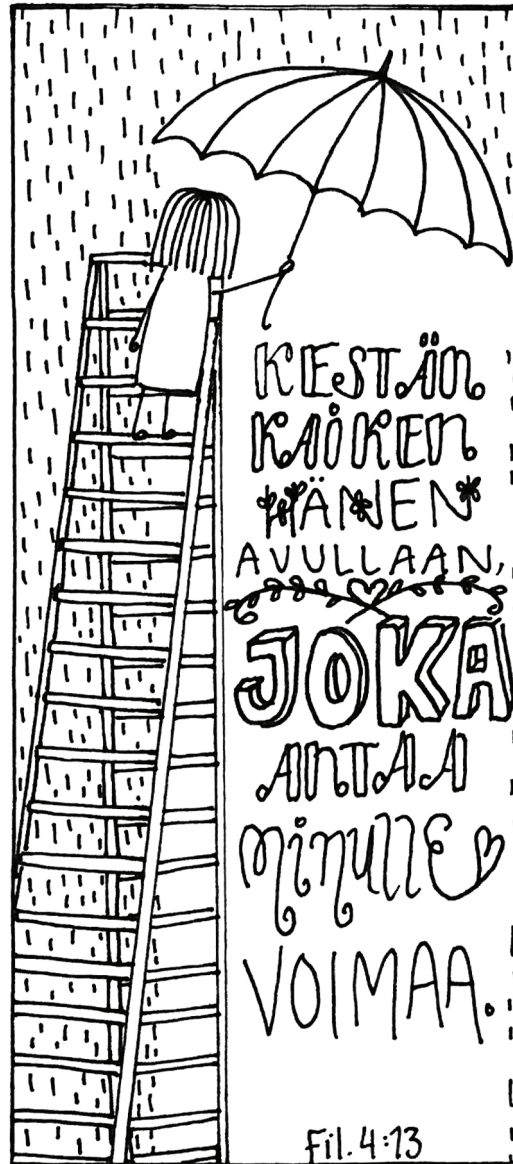 KESTÄN
KAiKEN
HÄNEN
AVULLAAN,
JOKA
ANTAA
MiNULLE
VOIMAA.
Fil. 4:13